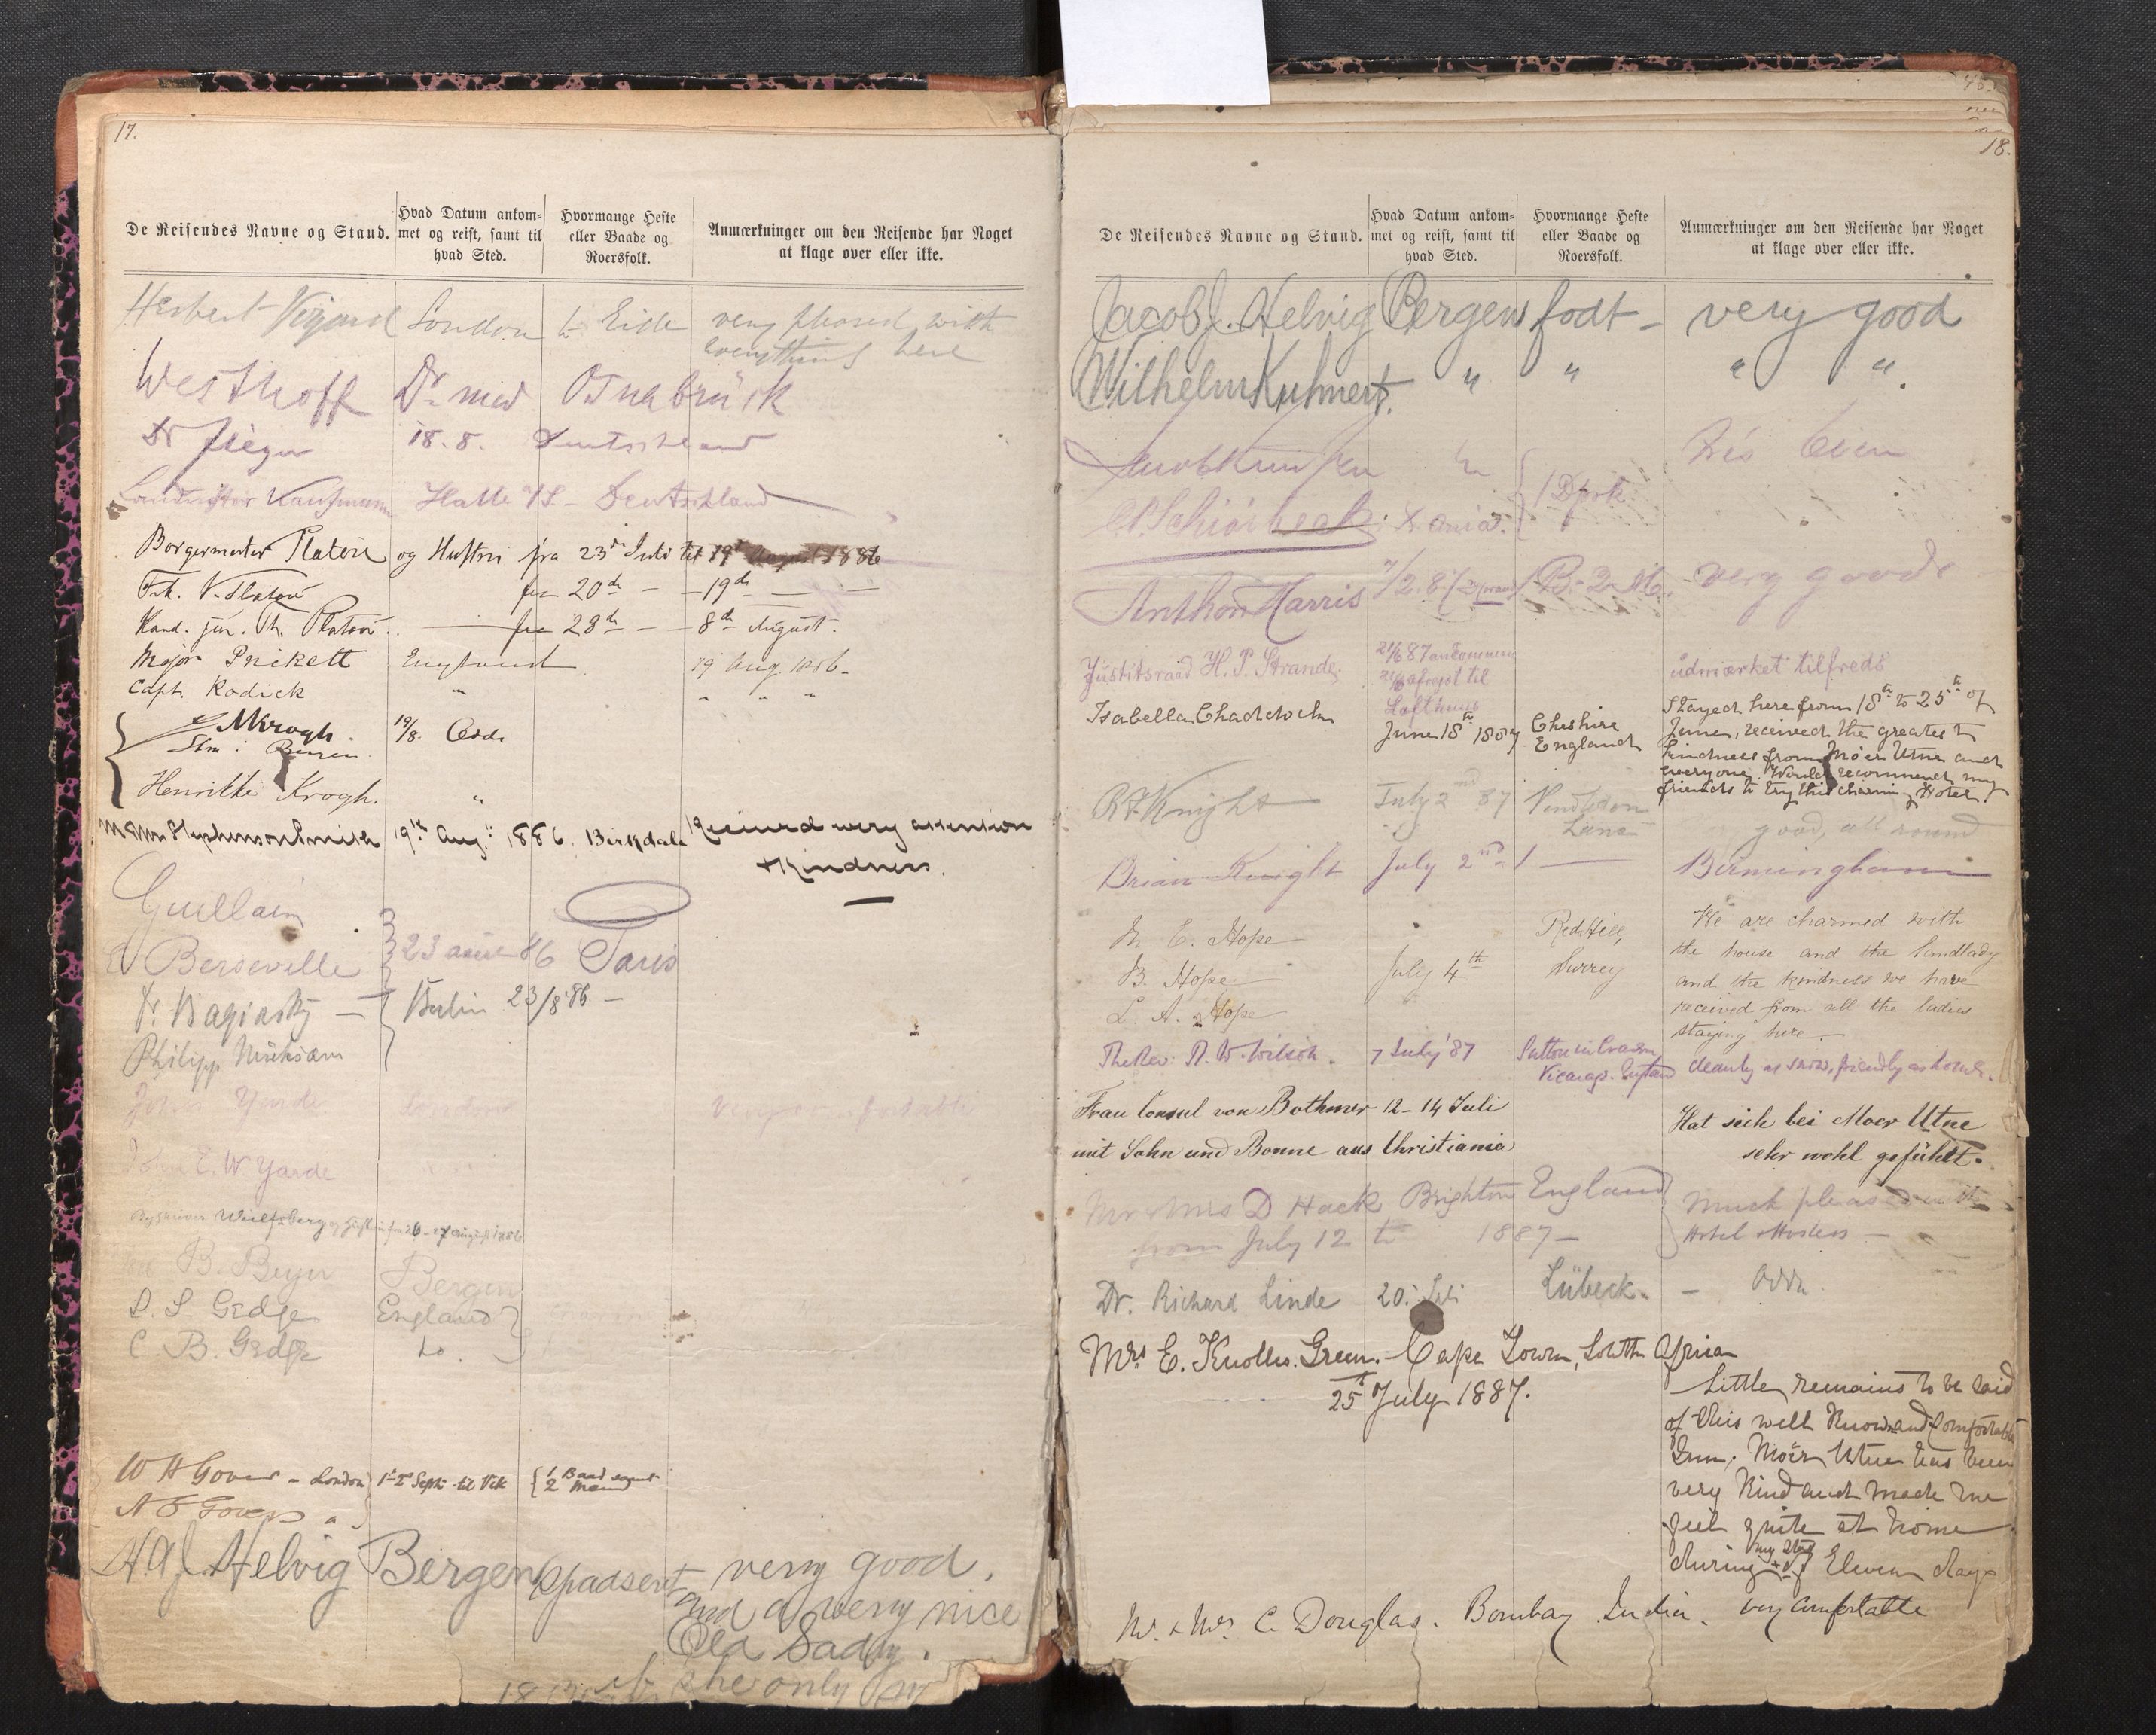 17.
De Reisendes Navne og Stand.
Hvad Datum ankom-
met og reist, samt til
hvad Sted.
Hvormange Heste
eller Baade og
Roersfolk.
Anmærkninger om den Reisende har Noget
at klage over eller ikke.
Herbert London to Eide very pleased with
everything here
Westhoff Dr med Osnabrück
Dr 18. 8. Deutschland
Kaufmann Halle a/S - Deutschland
Borgermester Platou og Hustru fra 23de Juli til 19de August 1886
Frk. V. Platou fra 20de - 19de
Kand. jur. Th. Platou fra 28de - 8de August.
Major Prickett England 19 Aug. 1886
Capt. Rodick " " " "
Krogh. 19/8. Odde
Henrikke Krogh. "
Stephenson Smith 19th Aug. 1886. Birkdale Received every attention
& Kindness.
Guillain
Berseville 23 86 Paris
Dr. Baginsky Berlin 23/8 86 -
Philipp Mühsam
John Yarde London
John E. W Yarde
Wulfsberg 26 - 27 august 1886
B. Beyer Bergen
S. S. Gedge England
C. B. Gedge do.
W H Gover - London 1-2 Septr til Vik { 1 Baad
2 Mand
Helvig Bergen Spadseret very good,
and a very nice
Old Lady.
if she only
18.
De Reisendes Navne og Stand.
Hvad Datum ankom-
met og reist, samt til
hvad Sted.
Hvormange Heste
eller Baade og
Roersfolk.
Anmærkninger om den Reisende har Noget
at klage over eller ikke.
Jacob J. Helvig Bergens fodt - very good
Wilhelm Kuhnert. " " " ".
Très bien
Anthon Harris very goode
Justitsraad H. P. Strande. 21/6 87 ankommen
afrejst til
Lofthuus
udmærket tilfreds
Isabella Chaddock June 18th 1887 Cheshire
England
Stayed here from 18th to 25th of
June, received the greatest
kindness from Moer Utne and
everyone. Would recommend my
friends to try this charming Hotel.
R F Knight July 2nd 87 Pendleton
Lane
good, all round
Brian Knight July 2nd / — Birmingham
M E. Hope
B. Hope
L. A. Hope
July 4th
Redhill,
Surrey
We are charmed with
the house and the landlady
and the kindness we have
received from all the ladies
staying here. —
The Rev: R. W. Wilson. 7 July '87 Sutton in Craven
Vicarage. England
cleanly as snow, friendly as home.
Frau Consul von Bothmer 12 - 14 Juli
mit Sohn und Bonne aus Christiania
Hat sich bei Moer Utne
sehr wohl gefühlt.
Mr & Mrs D Hack Brighton England
from July 12 to 1887 —
Much pleased with
Hotel & Hostess —
Dr. Richard Linde 20. Juli Lübeck. - Odda.
Mrs E. Knolles. Green. - Cape Town, South Africa
25th July 1887.
Little remains to be said
of this well known and comfortable
Inn. Moer Utne has been
very kind and made me
feel quite at home
during my stay of Eleven days
Mr. & Mrs C. Douglas. Bombay India. very comfortable